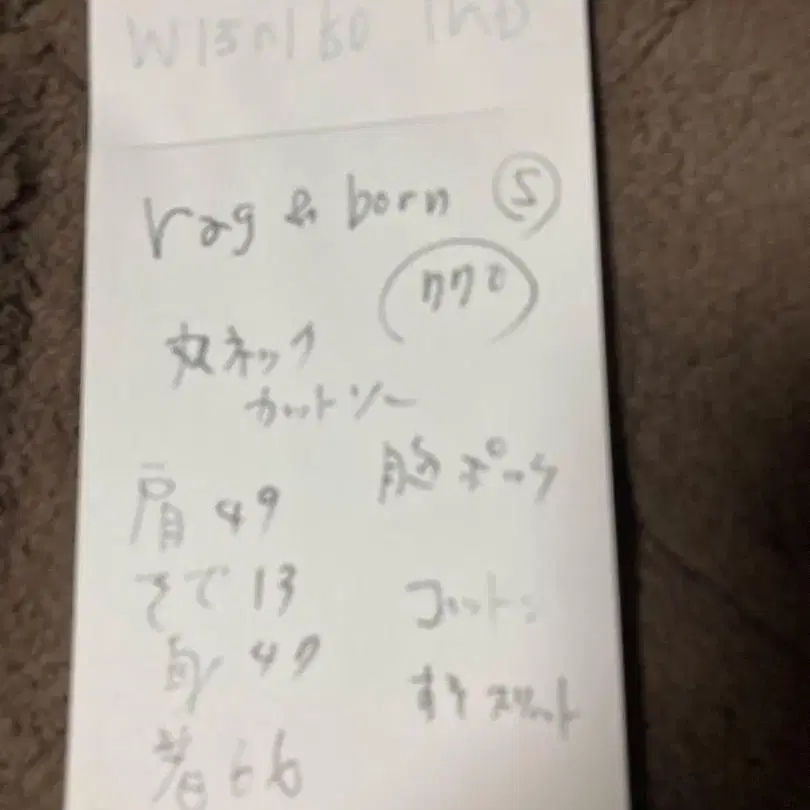 rag & born Ⓢ
770
丸ネック
カットソー
胸ポッケ
肩 49
そで 13
身 47
着 66
コットン
すそ スリット